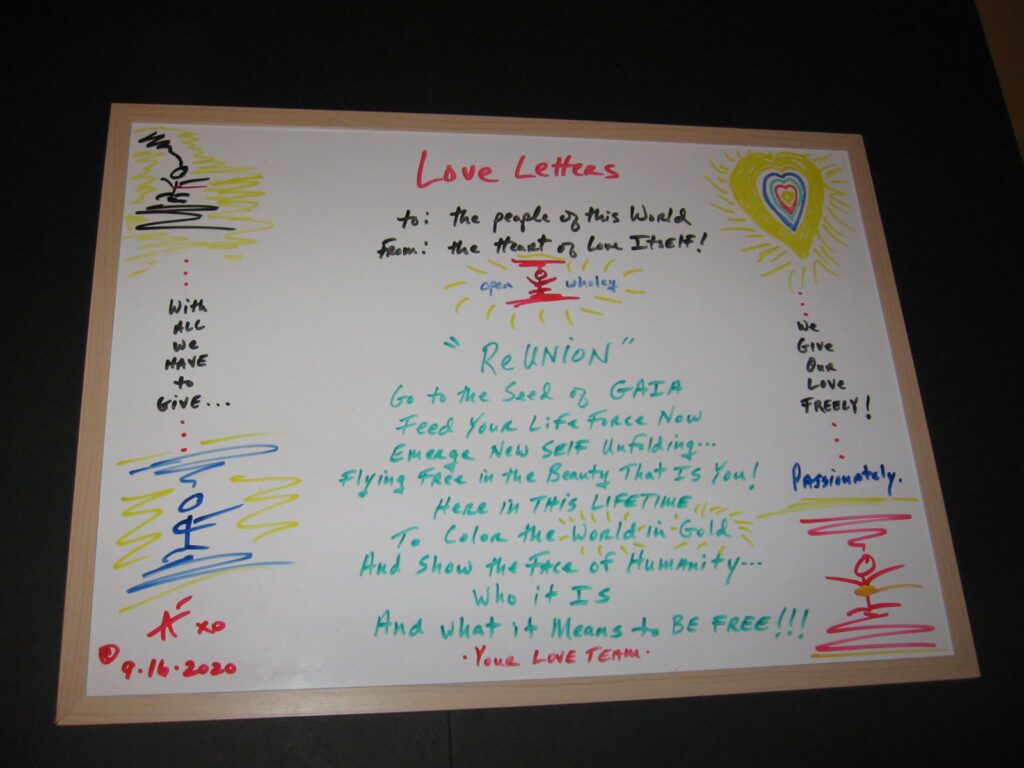 Love Letters
to: the people of this World
From: the Heart of Love ITSELF!
open wholey
"ReUNION"
Go to the Seed of GAIA
Feed Your Life Force Now
Emerge New SELF Unfolding...
Flying Free in the Beauty That Is You!
Here in THIS LIFETIME
To Color the World in Gold
And Show the Face of Humanity...
Who it IS
And what it Means to BE FREE!!!
·Your LOVE TEAM·
With
ALL
We
HAVE
to
GIVE...
xo
9.16.2020
We
GIVE
Our
LOVE
FREELY!
Passionately.